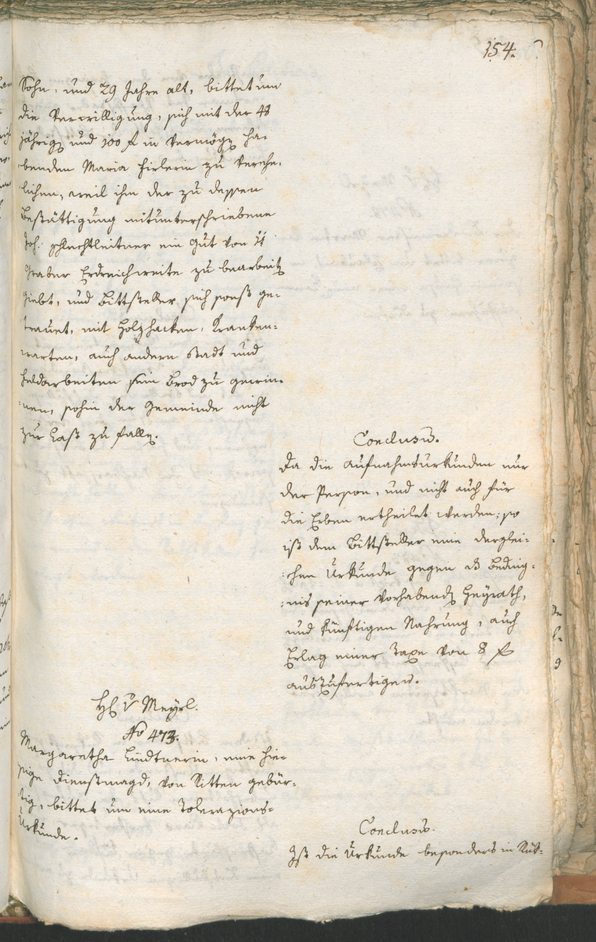 154.
Sohn, und 29 Jahre alt, bittet um
die Verwilligung, sich mit der 41
jährig und 100 f in Vermög ha-
benden Maria Hirlerin zu verehe-
lichen, weil ihm der zu dessen
Bestättigung mitunterschriebene
Joh. Schlechtleitner ein Gut von 11
Graber Erdreichweite zu bearbeit
giebt, und Bittsteller sich sonst ge-
trauet, mit Holzhacken, Kranken-
warten, auch andern Stadt und
Feldarbeiten sein Brod zu gewin-
nen, sohin der Gemeinde nicht
zur Last zu falln.
Conclusum.
Da die Aufnahmsurkunden nur
der Person, und nicht auch für
die Erben ertheilet werden; so
ist dem Bittsteller eine derglei-
chen Urkunde gegen Beding-
nis seiner vorhabend Heyrath,
und künftigen Nahrung, auch
Erlag einer Taxe von 8 f
auszufertigen.
H: v Mayrl.
No 473.
Margaretha Lindtnerin, eine hie-
sige Dienstmagd, von Ritten gebür-
tig, bittet um eine Tolerazions-
Urkunde.
Conclusum.
Ist die Urkunde besonders in Rük-